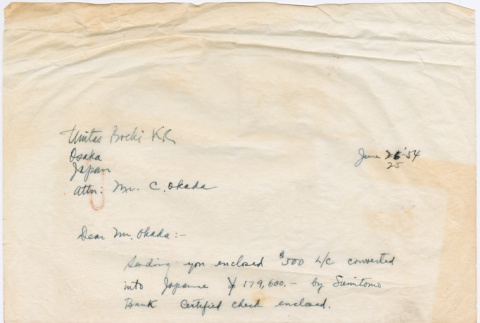 Unitas Boeki KK
Osaka
Japan
June 26 '54
25
Attn: Mr. C. Okada
Dear Mr. Okada:-
Sending you enclosed $500 L/C converted
into Japanese ¥ 179,600.- by Sumitomo
Bank Certified check enclosed.